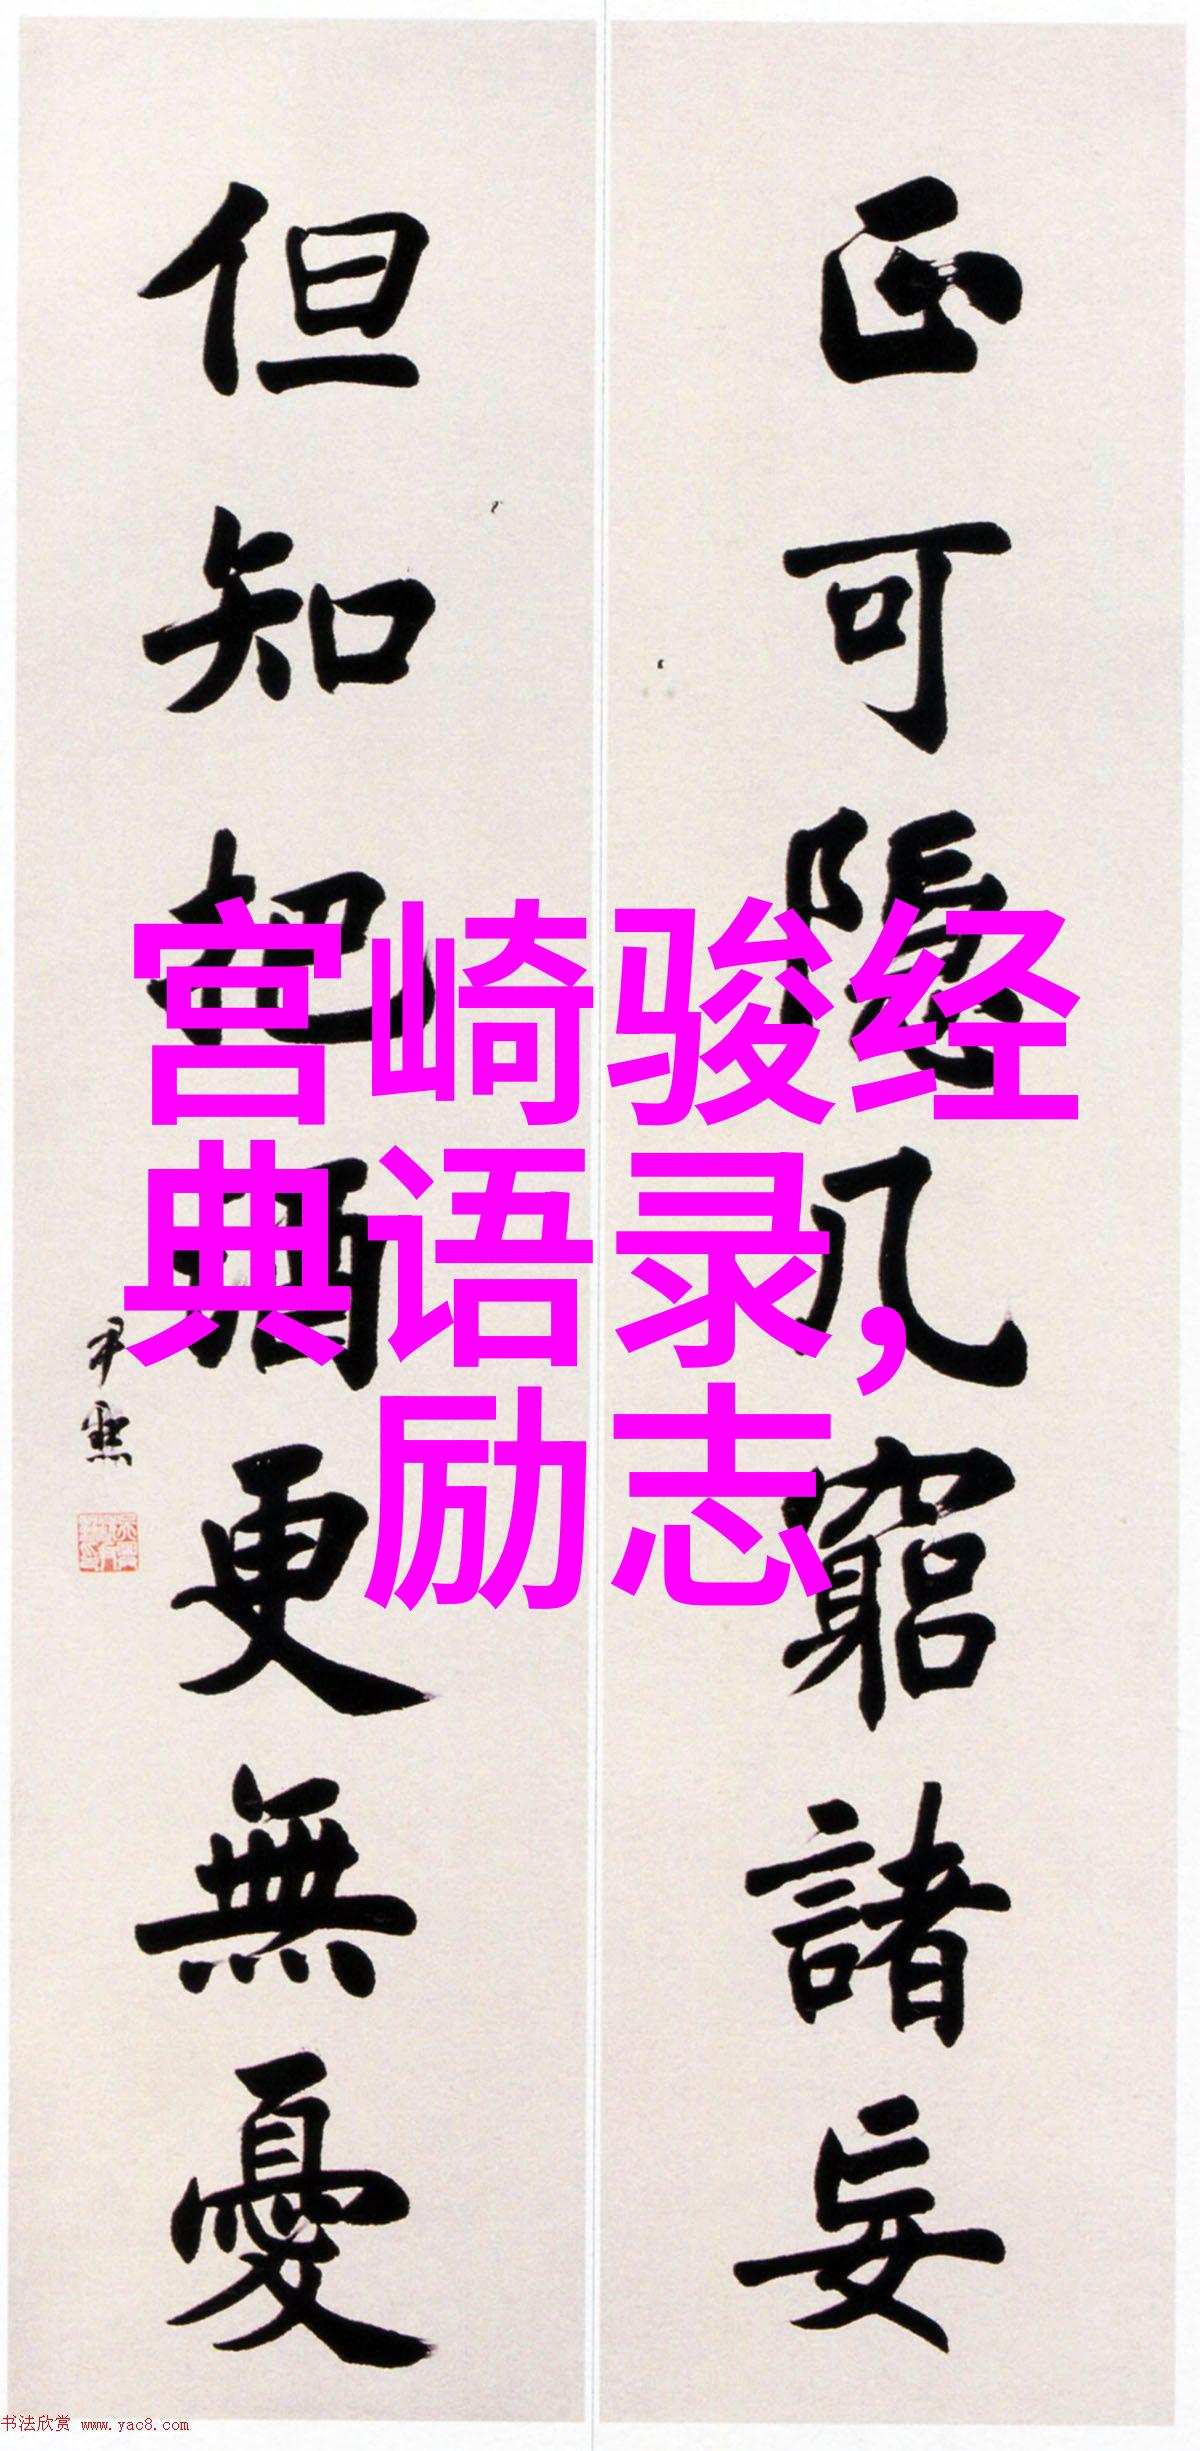 正可隱几窮諸妄
但知把酒更無憂
尹默
宫崎骏经
典语录，
励志
书法欣赏 www.yac8.com